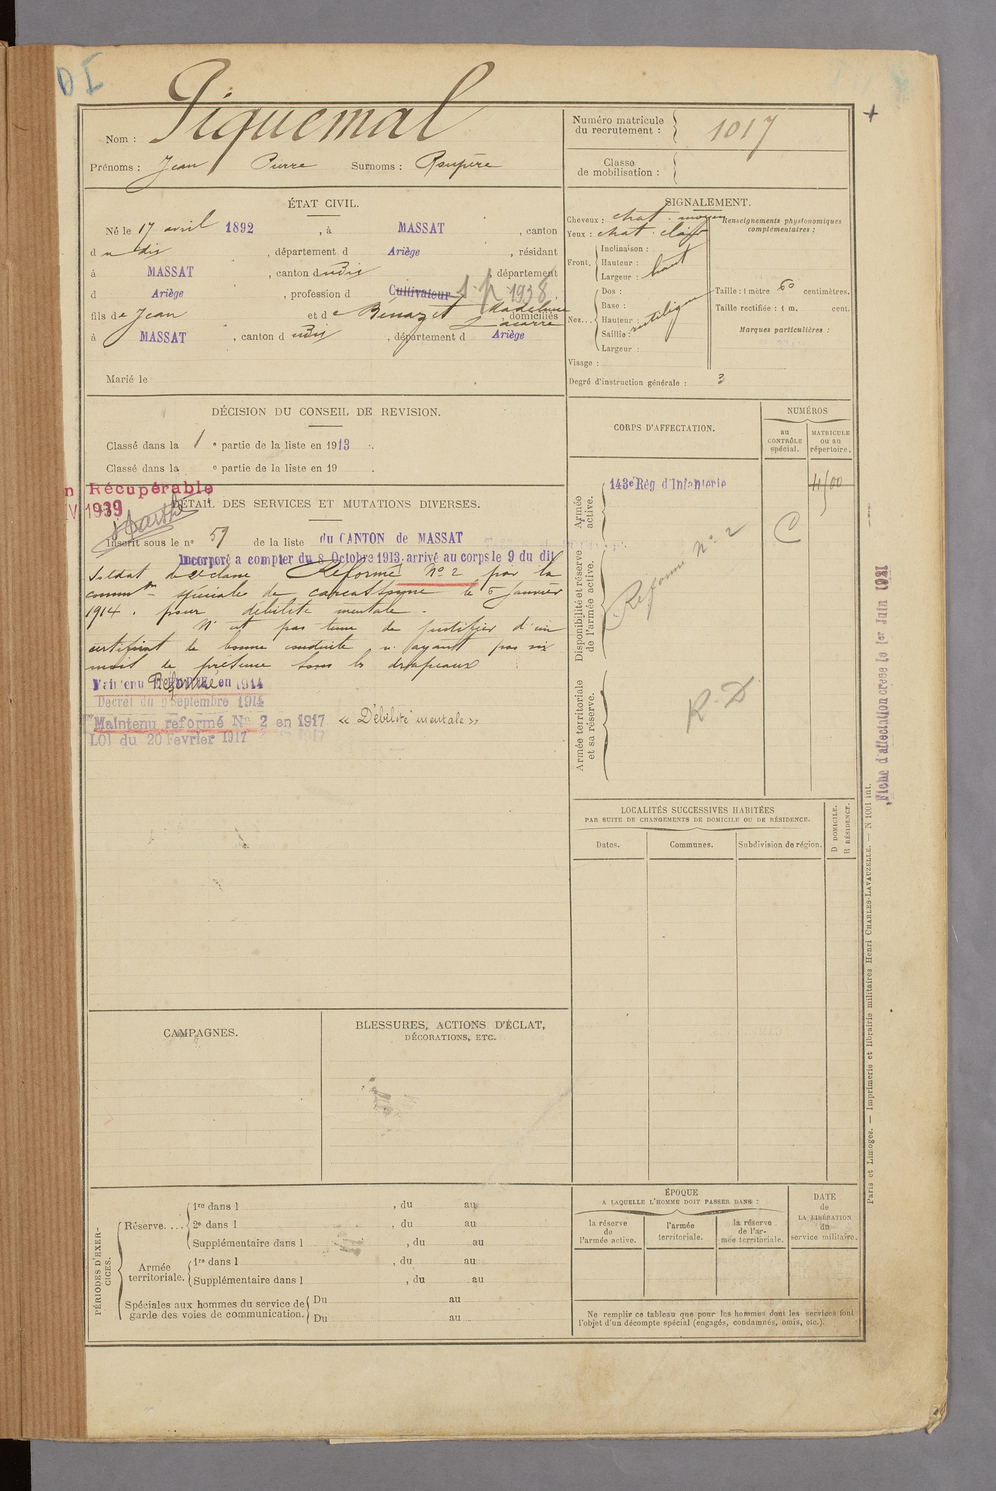 D I
Nom : Piquemal
Prénoms : Jean Pierre Surnoms : Rsupère
Numéro matricule
du recrutement : 1017
Classe
de mobilisation :
+
ÉTAT CIVIL.
Né le 17 avril 1892, à MASSAT, canton
d udit, département d Ariège, résidant
à MASSAT, canton dudit, département
d Ariège, profession d Cultivateur S.P. 1938
fils de Jean et de Benazet Madeleine domiciliés
Lacarre
à MASSAT, canton d udit, département d Ariège
Marié le
SIGNALEMENT.
Cheveux : chat. moyen
Yeux : chat. clair
Front. Inclinaison :
Hauteur : haut
Largeur :
Nez... Dos :
Base :
Hauteur :
Saillie : rectiligne
Largeur :
Visage :
Degré d'instruction générale : 3
Renseignements physionomiques
complémentaires :
Taille : 1 mètre 60 centimètres.
Taille rectifiée : 1 m. cent.
Marques particulières :
DÉCISION DU CONSEIL DE REVISION.
Classé dans la 1 e partie de la liste en 1913.
Classé dans la e partie de la liste en 19 .
n Récupérable
IV 1939
DÉTAIL DES SERVICES ET MUTATIONS DIVERSES.
Inscrit sous le n° 59 de la liste du CANTON de MASSAT
Incorporé a compter du 8 Octobre 1913. arrivé au corps le 9 du dit
Soldat de 2e classe Réformé N° 2 par la
common spéciale de Carcassonne le 5 Janvier
1914. pour débilité mentale.
N'est pas tenu de justifier d'un
certificat de bonne conduite n'ayant pas six
mois de présence sous les drapeaux
Maintenu Réformé en 1914
Décret du 9 Septembre 1914
Maintenu reformé N° 2 en 1917 « Débilité mentale »
LOI du 20 Fevrier 1917
CORPS D'AFFECTATION.
NUMÉROS
au
CONTRÔLE
spécial.
MATRICULE
ou au
répertoire.
Armée
active.
143e Rég d'Infanterie
4100
C
Disponibilité et réserve
de l'armée active.
Réformé n° 2
Armée territoriale
et sa réserve.
R. D.
Fiche d'affectation créée le 1er Juin 1921
LOCALITÉS SUCCESSIVES HABITÉES
PAR SUITE DE CHANGEMENTS DE DOMICILE OU DE RÉSIDENCE.
Dates.
Communes.
Subdivision de région.
D DOMICILE.
R RÉSIDENCE.
CAMPAGNES.
BLESSURES, ACTIONS D'ÉCLAT,
DÉCORATIONS, ETC.
PÉRIODES D'EXER-
CICES.
Réserve.... 1re dans l , du au
2e dans l , du au
Supplémentaire dans l , du au
Armée
territoriale. 1re dans l , du au
Supplémentaire dans l , du au
Spéciales aux hommes du service de
garde des voies de communication. Du au
Du au
ÉPOQUE
A LAQUELLE L'HOMME DOIT PASSER DANS :
la réserve
de
l'armée active.
l'armée
territoriale.
la réserve
de l'ar-
mée territoriale.
DATE
de
LA LIBÉRATION
du
service militaire.
Ne remplir ce tableau que pour les hommes dont les services font
l'objet d'un décompte spécial (engagés, condamnés, omis, etc.).
Paris et Limoges. — Imprimerie et librairie militaires Henri CHARLES-LAVAUZELLE. — N 1001 int.